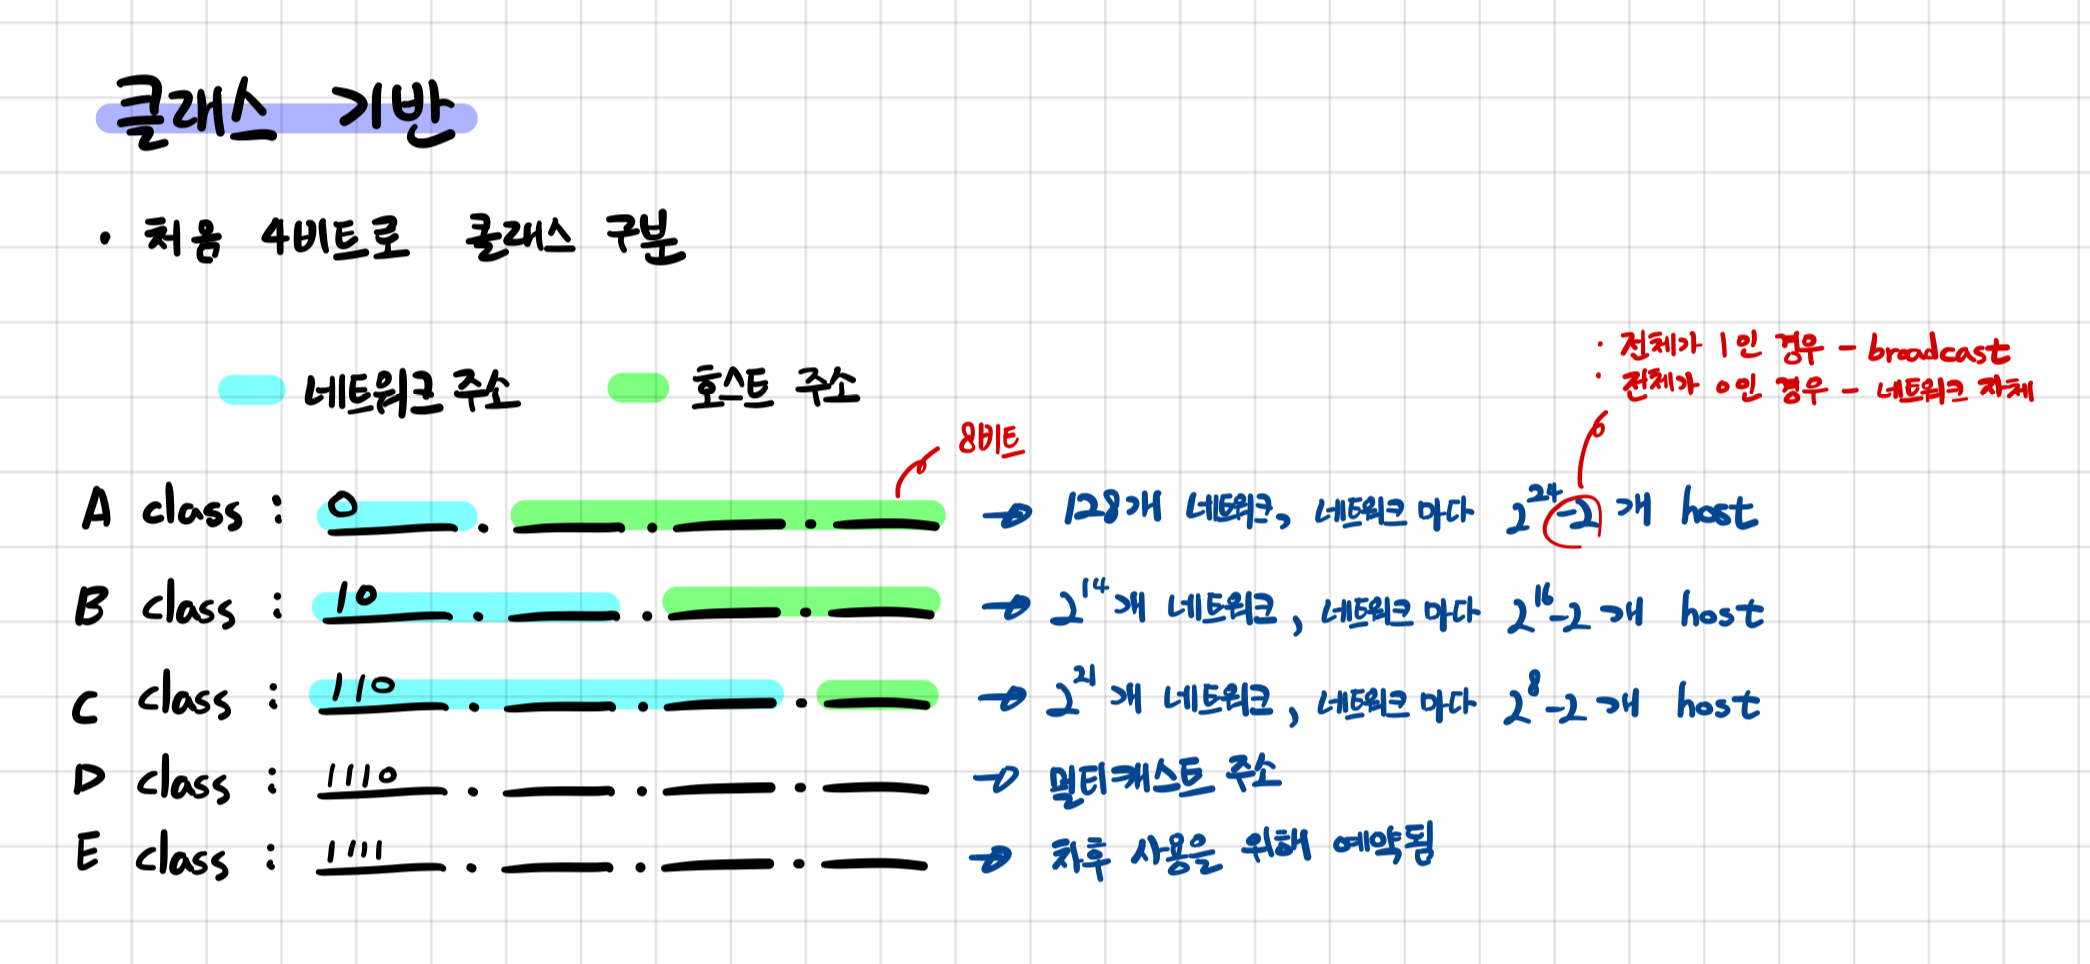 클래스 기반
· 처음 4비트로 클래스 구분
· 전체가 1인 경우 - broadcast
· 전체가 0인 경우 - 네트워크 자체
네트워크 주소 호스트 주소
8비트
A class : 0 . . . → 128개 네트워크, 네트워크 마다 2²⁴-2개 host
B class : 10 . . . → 2¹⁴개 네트워크, 네트워크 마다 2¹⁶-2개 host
C class : 110 . . . → 2²¹개 네트워크, 네트워크 마다 2⁸-2개 host
D class : 1110 . . . → 멀티캐스트 주소
E class : 1111 . . . → 차후 사용을 위해 예약됨